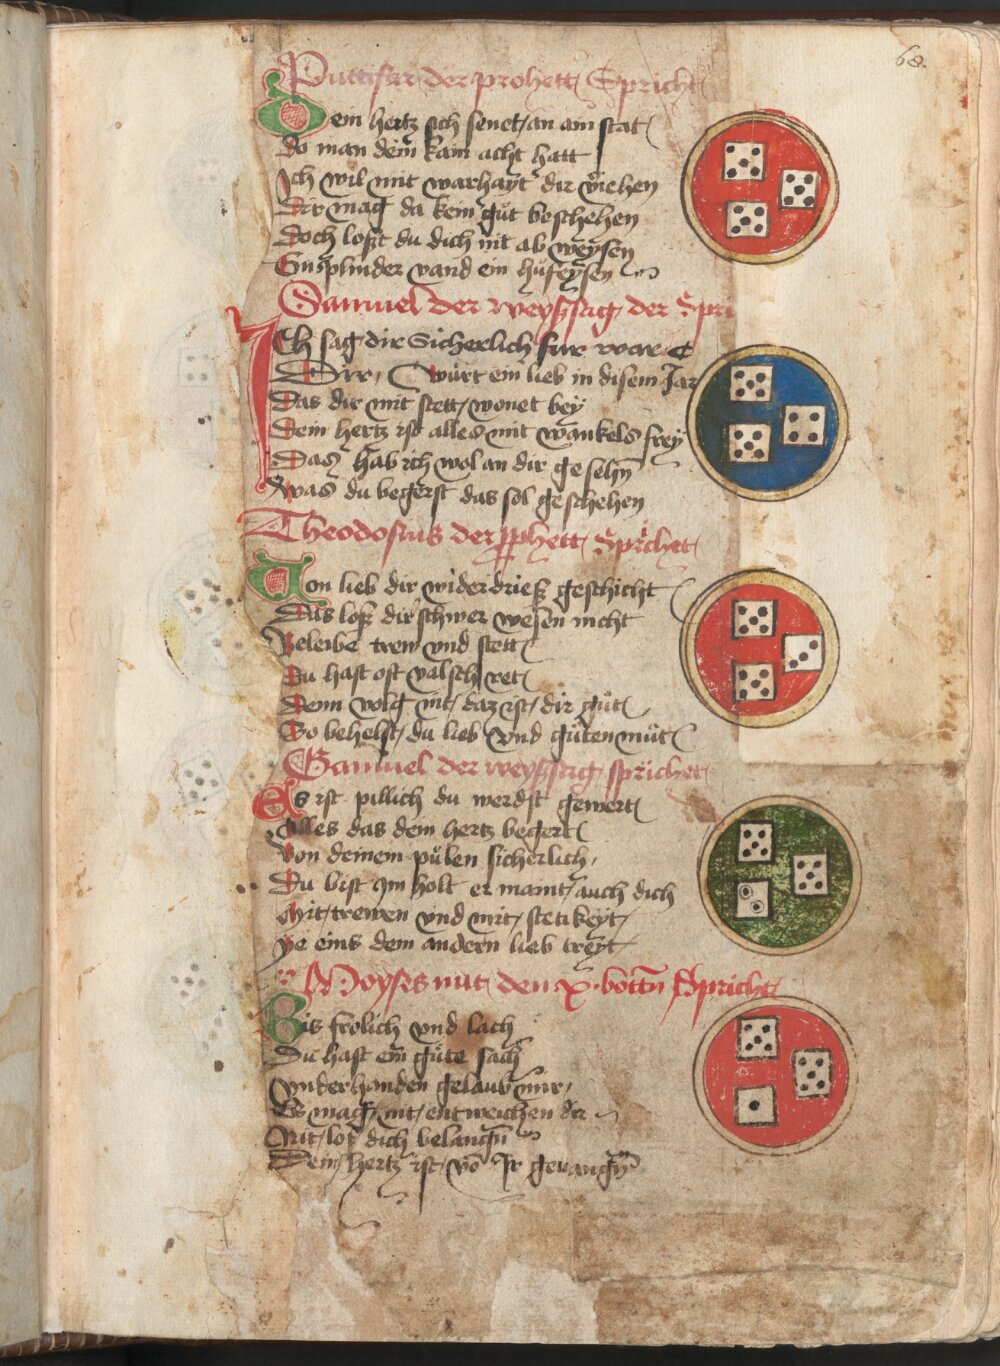 68.
Puttifar der prohett Spricht
Dein hertz sich senet an ain stat
Do man dein kain acht hatt
Ich wil mit warhayt dir
Dir mag da kein gůt beschehen
Doch loßt du dich nit ab weysen
Ein plinder vand ein hůfeysen
Samuel der weyssag der Spri
Ich sag dir Sicherlich fur war
Dirr würt ein lieb in disem Jar
Das dir mit stett wonet bey
Dein hertz ist alles mit wankels frey
Das hab ich wol an dir gesehn
Was du begerst das sol geschehen
Theodosius der pphett Sprichet
Von lieb dir widerdrieß geschicht
Das loß dir schwer wesen nicht
Beleibe trew vnd stett
Du hast oft valsch ret
Denn volg nit daz ist dir gůt
So behelst du lieb vnd gůten můt
Samuel der weyssag sprichet
Es ist pillich du werdst gewert
Alles das dein hertz begert
Von deinem půlen sicherlich
Du bist Im holt er maint auch dich
Mit trewen vnd mit stetikeyt
Ye eins dem andern lieb treyt
Moyses mit den x botten Spricht
Bis frolich vnd lach
Du hast ein gůte sach
Vnder handen gelaub mir
Es mag nit entweichen dir
Nit loß dich belangn
Dein hertz ist vō Ir gevangn